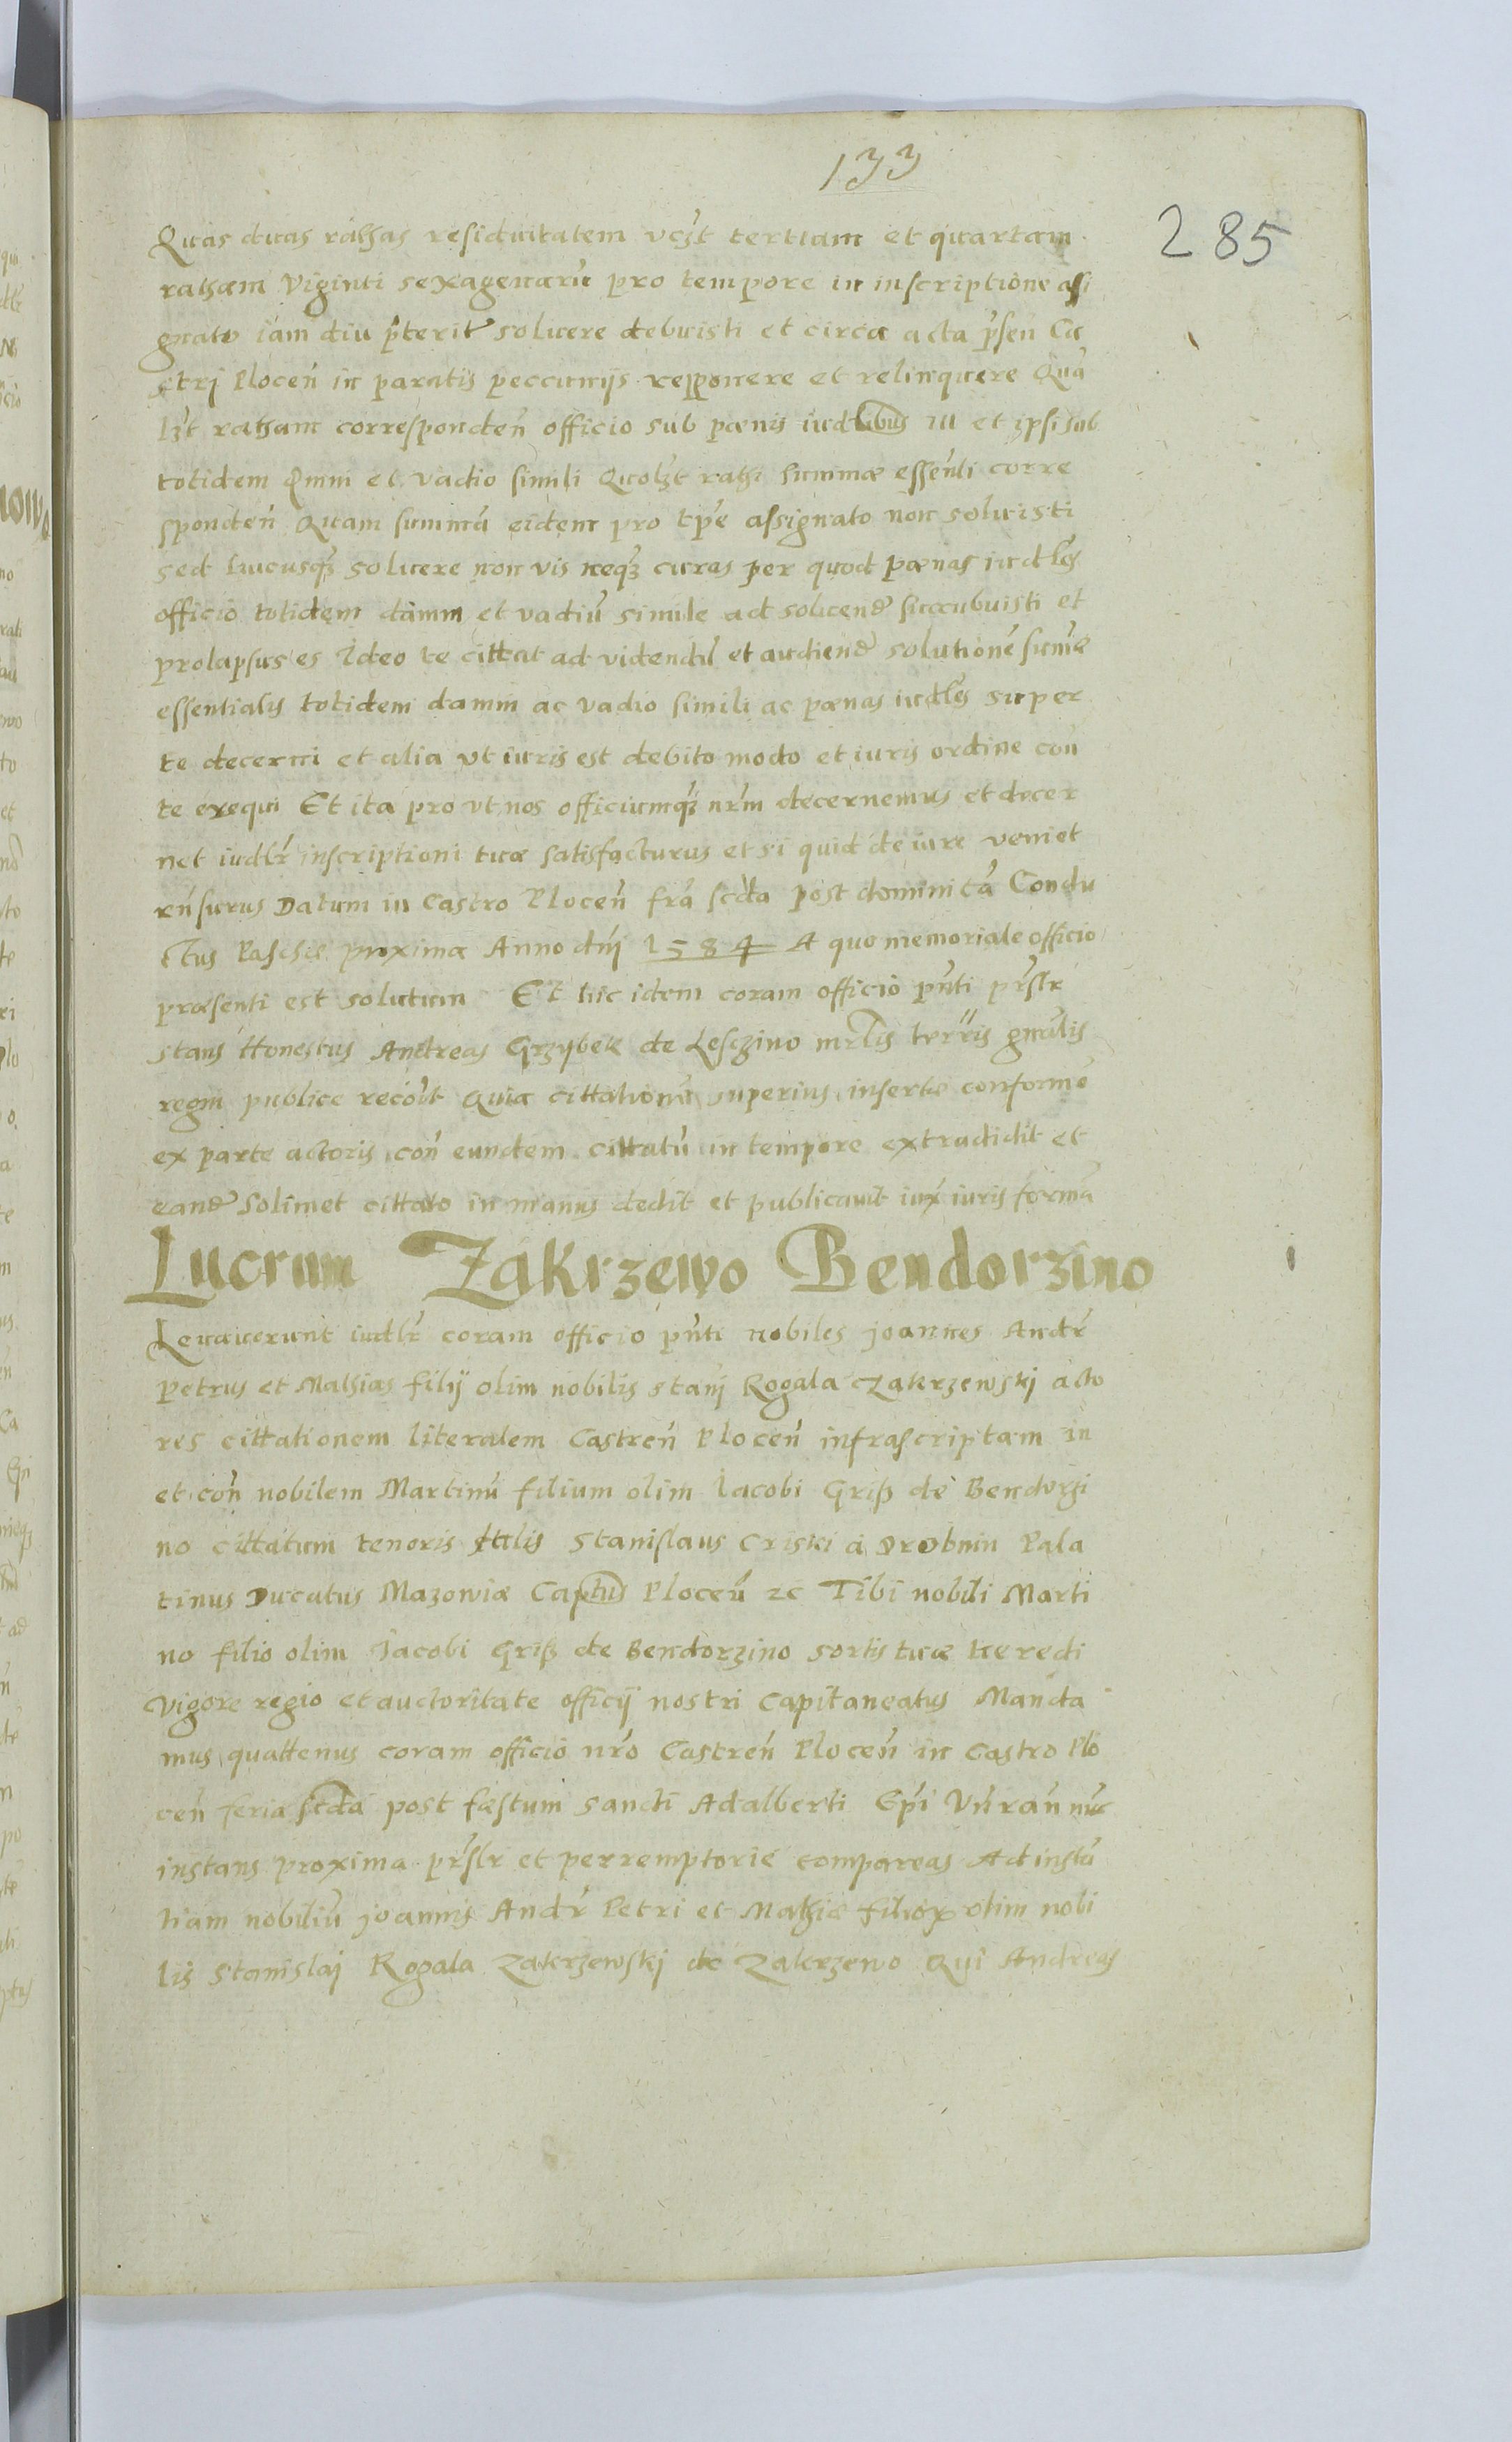 133
285
Quas duas rathas residuitatem vczt tertiam et quartam
ratham Viginti sexagenarū pro tempore in inscriptione assi
gnato iam diu p̄terit solvere debuisti et circa acta p̄sen Ca
strj Plocen̄ in paratis peccunijs repponere et relinquere Qua
lzt ratham corresponden̄ officio sub pœnis iudlibus iu et ipsi sub
totidem Dmni et vadio simili Quolzt rathi summæ essen̄li corre
sponden̄ Quam summā eidem pro tp̄e assignato non solvisti
sed hucusqz solvere non vis neqz curas per quod pœnas iudles
officio totidem damm et vadiū simile ad solvend succubuisti et
prolapsus es Ideo te cittat ad videndū et audiend solutionē sumæ
essentialis totidem damm ac vadio simili ac pœnas iudles super
te decerni et alia ut iuris est debito modo et iuris ordine con
te exequi Et ita pro ut nos officiumqz nr̄m decernemus et decer
net iudlr inscriptioni tuæ satisfacturus et si quid de iure veniet
rn̄surus Datum in Castro Plocen̄ fr̄a scda post dominicā Condu
ctus Paschæ proxima Anno dnj 1584 A quo memoriale officio
præsenti est solutum Et hic idem coram officio pn̄ti pr̄slr
stans Honestus Andreas Grzybek de Lesczino mrlis terris gnalis
regni publice reco̅it Quia cittationū superius insertæ conforme
ex parte actoris con̄ eundem cittatū in tempore extradidit et
eand solimet cittato in manus dedit et publicavit iux iuris formā
Lucrum Zakrzewo Bendorzino
Levaverunt iudlr coram officio pn̄ti nobiles Joannes Andr
Petrus et Mathias filij olim nobilis Stanj Rogala Zakrzewskj acto
res cittationem literalem Castren̄ Plocen̄ infrascriptam in
et con̄ nobilem Martinū filium olim Iacobi Griß de Bendorzi
no cittatum tenoris tllis Stanislaus Criski a Drobnin Pala
tinus Ducatus Mazowiæ Captus Plocen̄ zc Tibi nobili Marti
no filio olim Jacobi Griß de Bendorzino sortis tuæ heredi
Vigore regio et auctoritate officij nostri Capitaneatus Manda
mus quattenus coram officio nr̄o Castren̄ Plocen̄ in Castro Plo
cen̄ Feria scda post fæstum Sancti Adalberti Ep̄i Vn̄ran̄ nūc
instans proxima pr̄slr et perremptorie compareas Ad instā
tiam nobiliū Joannis Andr Petri et Mathiæ filior olim nobi
lis Stanislaj Rogala Zakrzewskj de Zakrzewo Qui Andreas